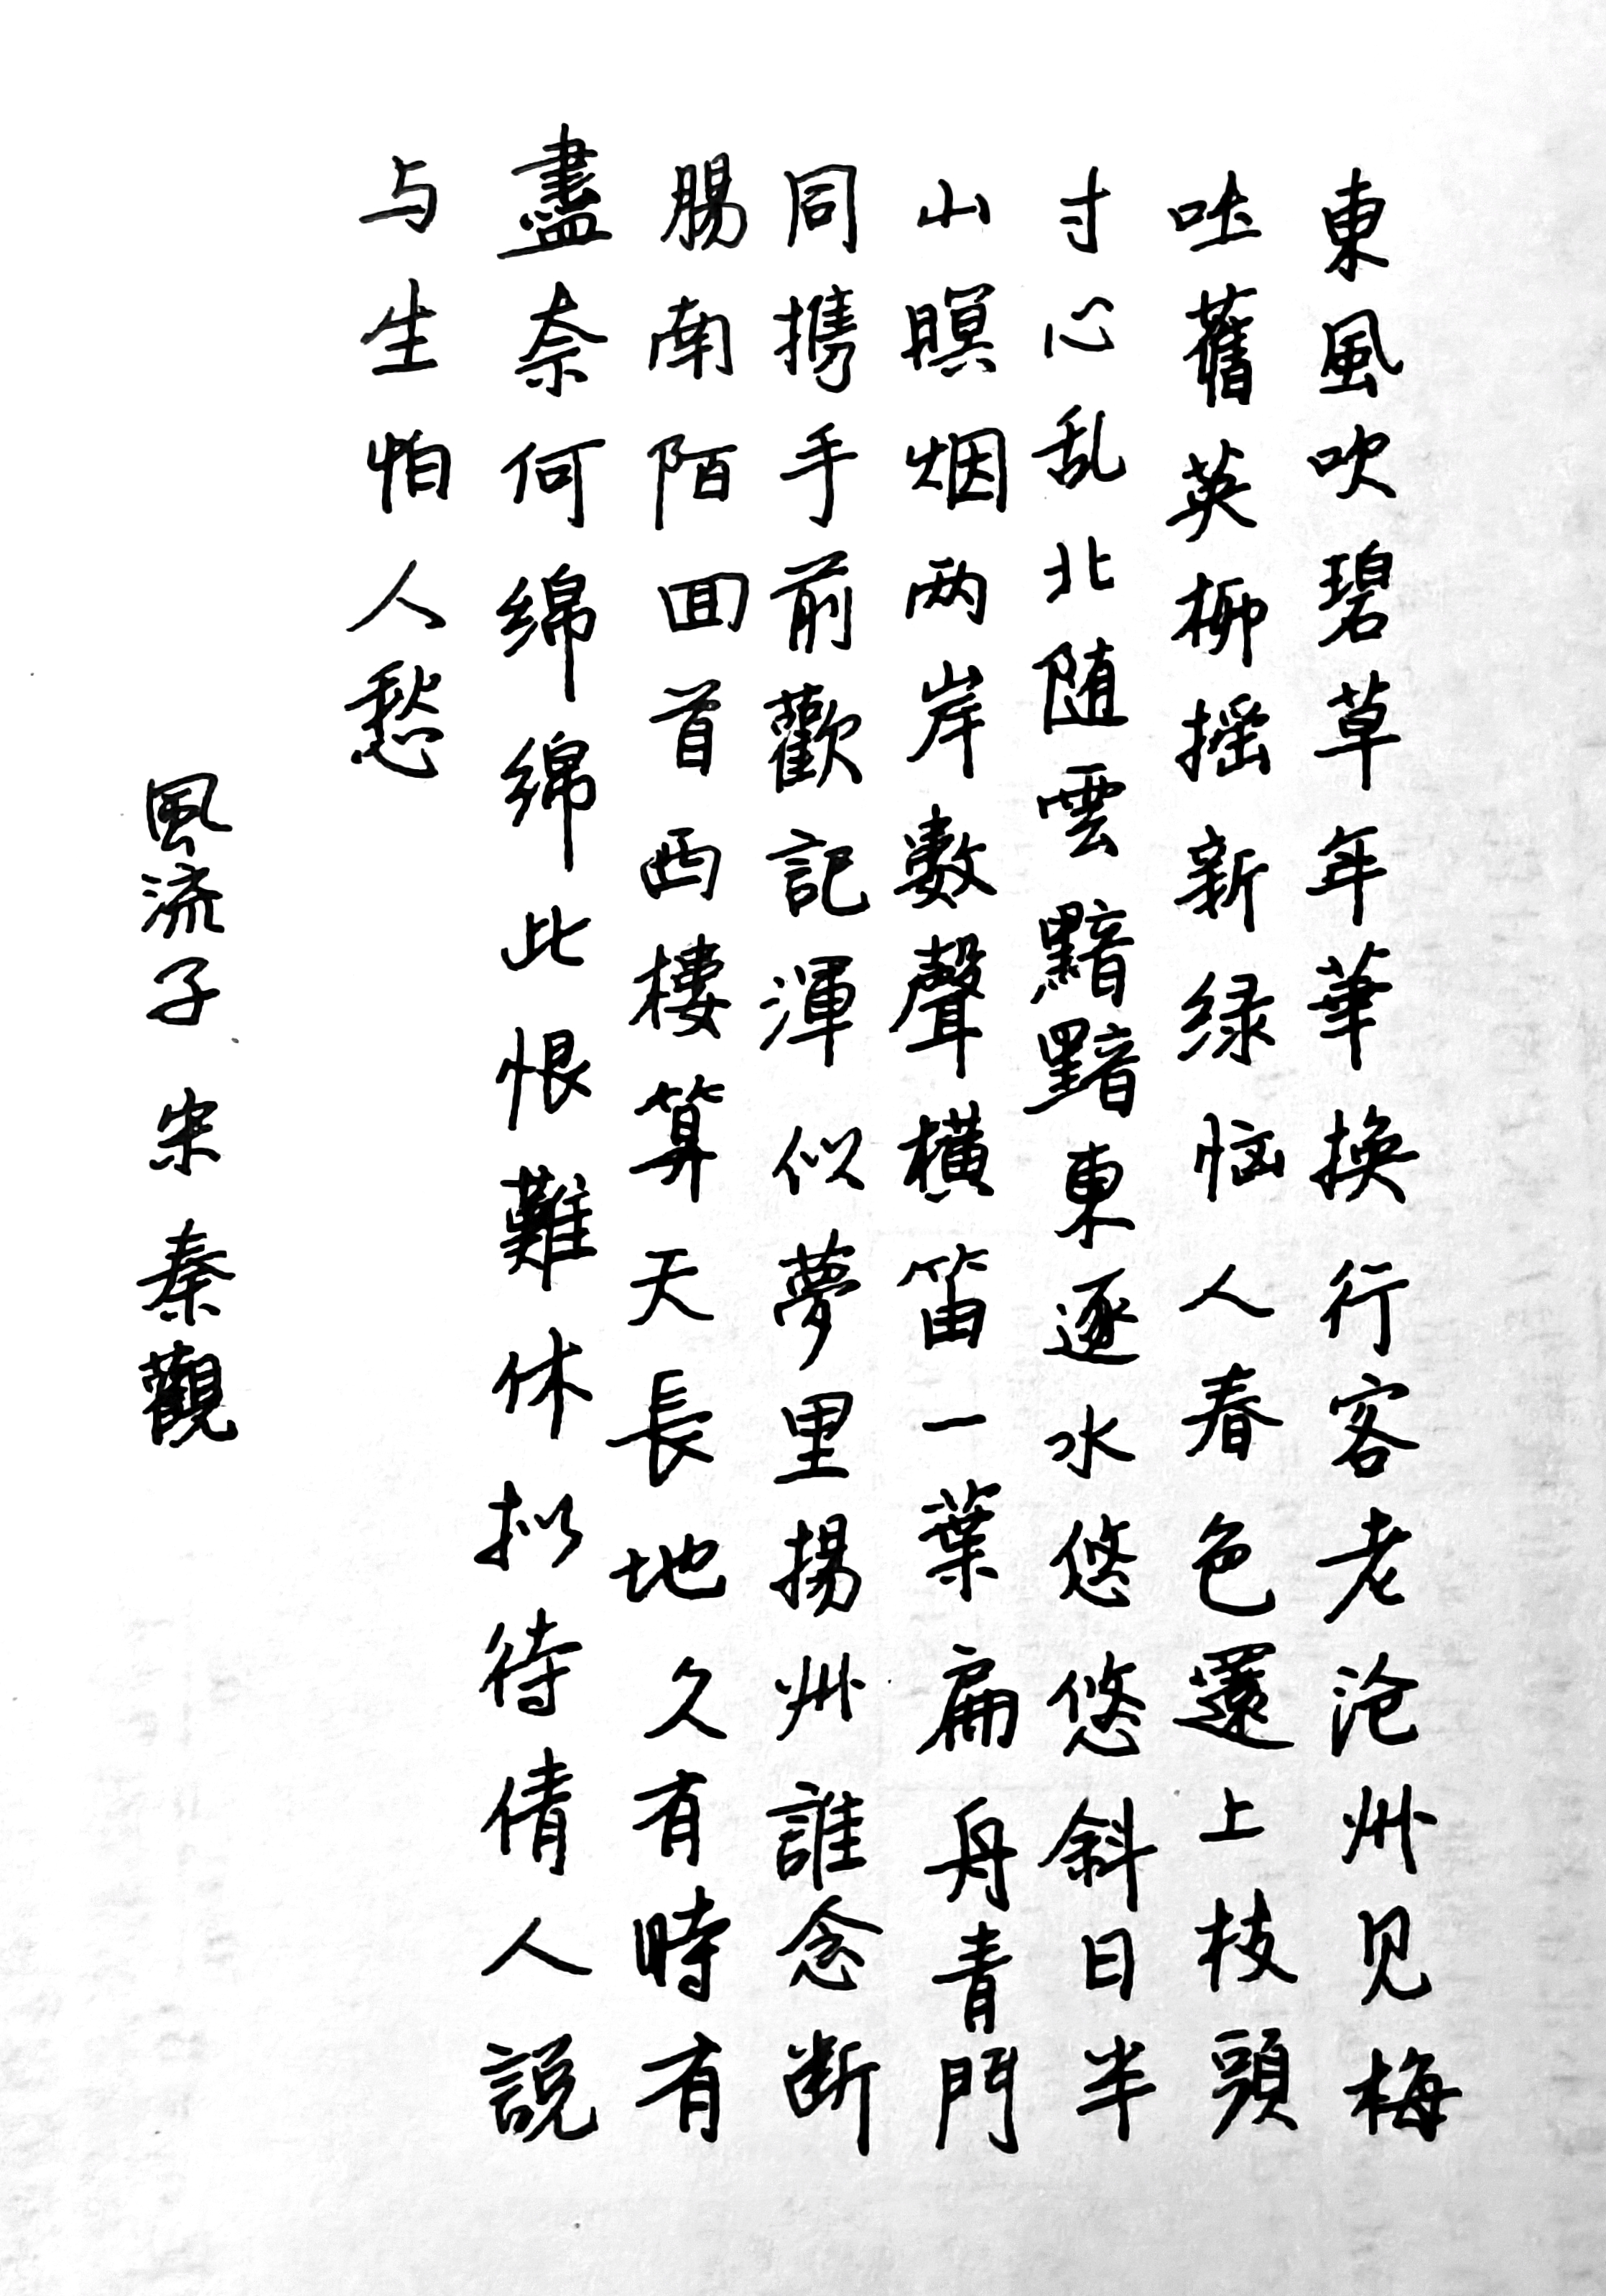 東風吹碧草年華換行客老沧州见梅
吐舊英柳摇新緑恼人春色還上枝頭
寸心乱北随雲黯黯東逐水悠悠斜日半
山暝烟两岸數聲橫笛一葉扁舟青門
同攜手前歡記渾似夢里揚州誰念断
腸南陌回首西樓算天長地久有時有
盡奈何綿綿此恨難休拟待倩人説
与生怕人愁
風流子 宋 秦觀